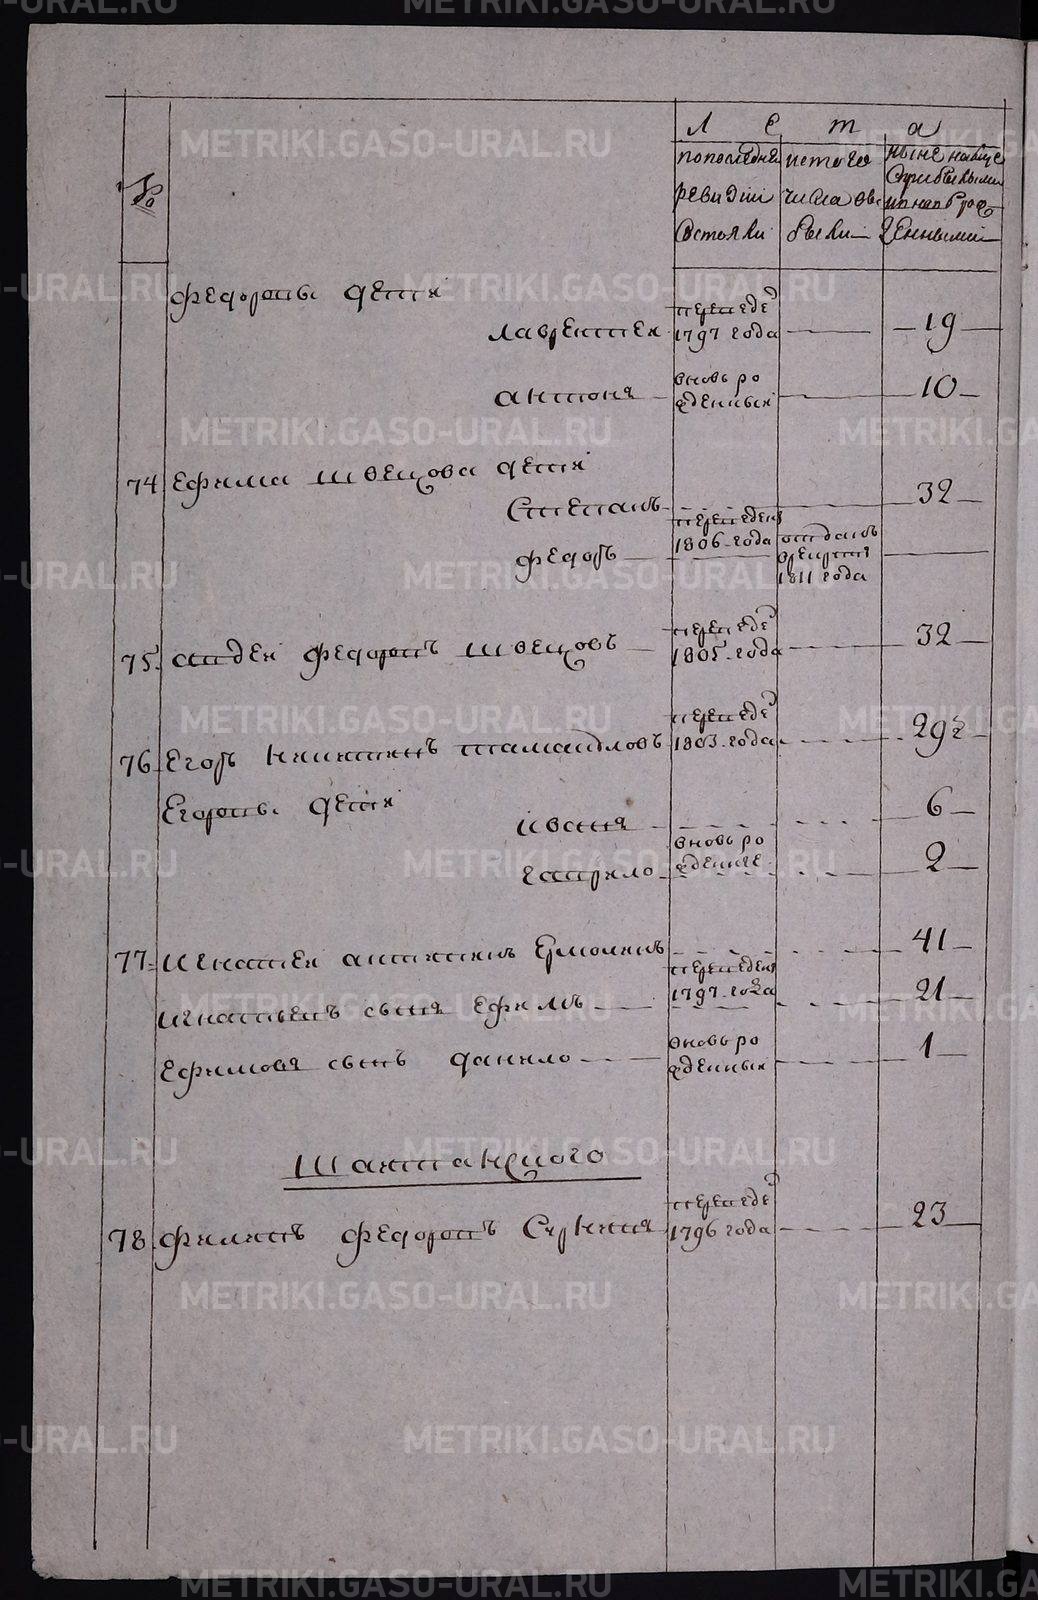 №
Лета
попоследней
ревизии
состояли
истого
числа вы
были
ныне налице
Сприбылыми
и
денными
Федоровы дети
Лаврентей
переведе
1797 года
19
антонъ
вновь ро
жденныя
10
74 Ефима Швецова дети
Степанъ
32
Федоръ
переведены
1806 года
отданъ
врекруты
1811 года
75 авдей Федоровъ Швецовъ
переведе
1805 года
32
76 Егоръ Никитинъ
переведе
1803 года
29
Егоровы дети
иванъ
6
гаврило
вновь ро
жденые
2
77 игнатей Ермолинъ
41
игнатьевъ сынъ Ефимъ
переведены
1797 года
21
Ефимовъ сынъ данило
вновь ро
жденныя
1
Шайтанскаго
78 Филипъ Федоровъ
переведе
1796 года
23
METRIKI.GASO-URAL.RU